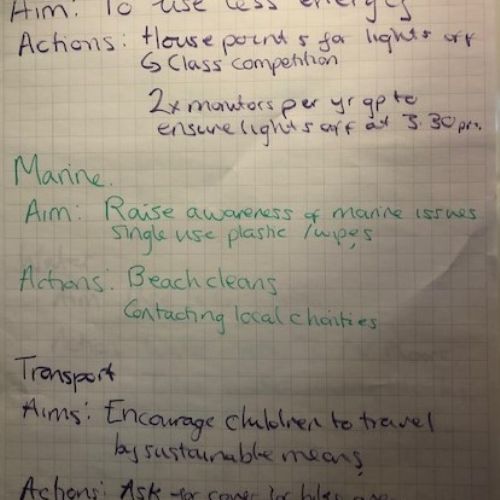 Aim: To use less energy
Actions: House points for lights off
↳ Class competition
2x monitors per yr gp to
ensure lights off at 3.30pm.
Marine.
Aim: Raise awareness of marine issues
single use plastic /wipes
Actions: Beach cleans
Contacting local charities
Transport
Aims: Encourage children to travel
by sustainable means
Actions: Ask for cover for bikes